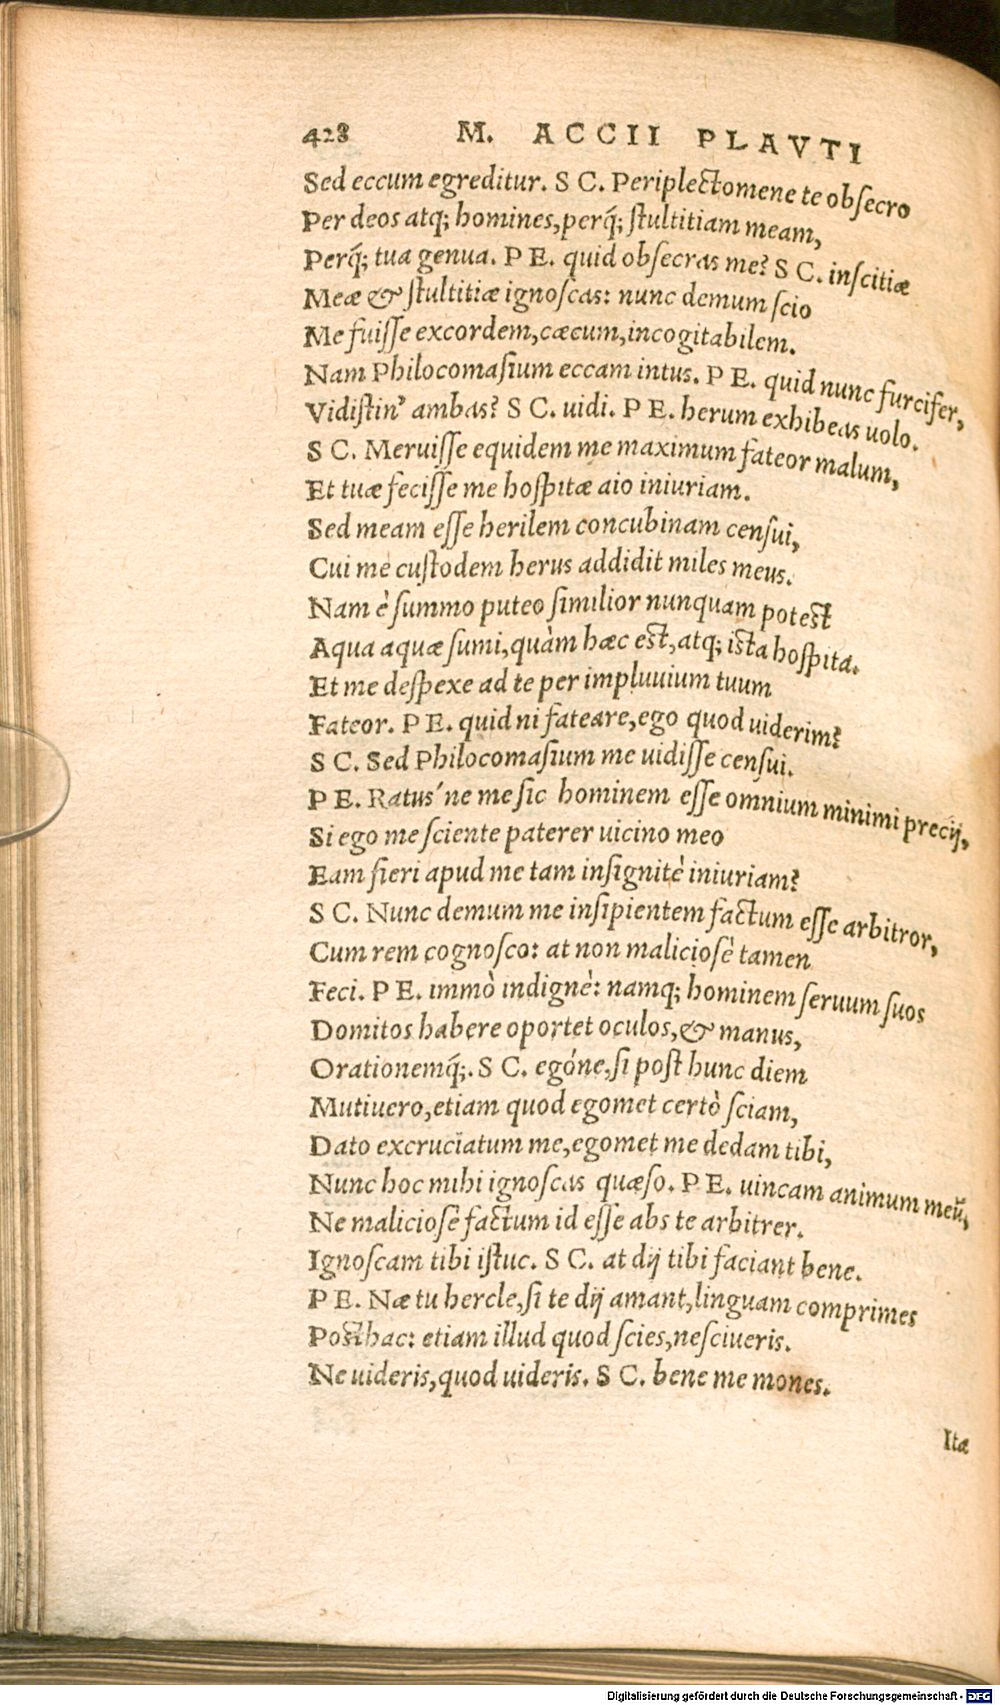 428 M. ACCII PLAVTI
Sed eccum egreditur. S C. Periplectomene te obsecro
Per deos atq; homines, perq́; stultitiam meam,
Perq́; tua genua. P E. quid obsecras me? S C. inscitiæ
Meæ & stultitiæ ignoscas: nunc demum scio
Me fuisse excordem, cæcum, incogitabilem.
Nam Philocomasium eccam intus. P E. quid nunc furcifer,
Vidistin' ambas? S C. uidi. P E. herum exhibeas uolo.
S C. Meruisse equidem me maximum fateor malum,
Et tuæ fecisse me hospitæ aio iniuriam.
Sed meam esse herilem concubinam censui,
Cui me custodem herus addidit miles meus.
Nam è summo puteo similior nunquam potest
Aqua aquæ sumi, quàm hæc est, atq; ista hospita.
Et me despexe ad te per impluuium tuum
Fateor. P E. quid ni fateare, ego quod uiderim?
S C. Sed Philocomasium me uidisse censui.
P E. Ratus´ne me sic hominem esse omnium minimi precij,
Si ego me sciente paterer uicino meo
Eam fieri apud me tam insignitè iniuriam?
S C. Nunc demum me insipientem factum esse arbitror,
Cum rem cognosco: at non maliciosè tamen
Feci. P E. immò indignè: namq; hominem seruum suos
Domitos habere oportet oculos, & manus,
Orationemq́;. S C. egóne, si post hunc diem
Mutiuero, etiam quod egomet certò sciam,
Dato excruciatum me, egomet me dedam tibi,
Nunc hoc mihi ignoscas quæso. P E. uincam animum meū,
Ne maliciosè factum id esse abs te arbitrer.
Ignoscam tibi istuc. S C. at dij tibi faciant bene.
P E. Næ tu hercle, si te dij amant, linguam comprimes
Posthac: etiam illud quod scies, nesciueris.
Ne uideris, quod uideris. S C. bene me mones.
Ita
Digitalisierung gefördert durch die Deutsche Forschungsgemeinschaft - DFG